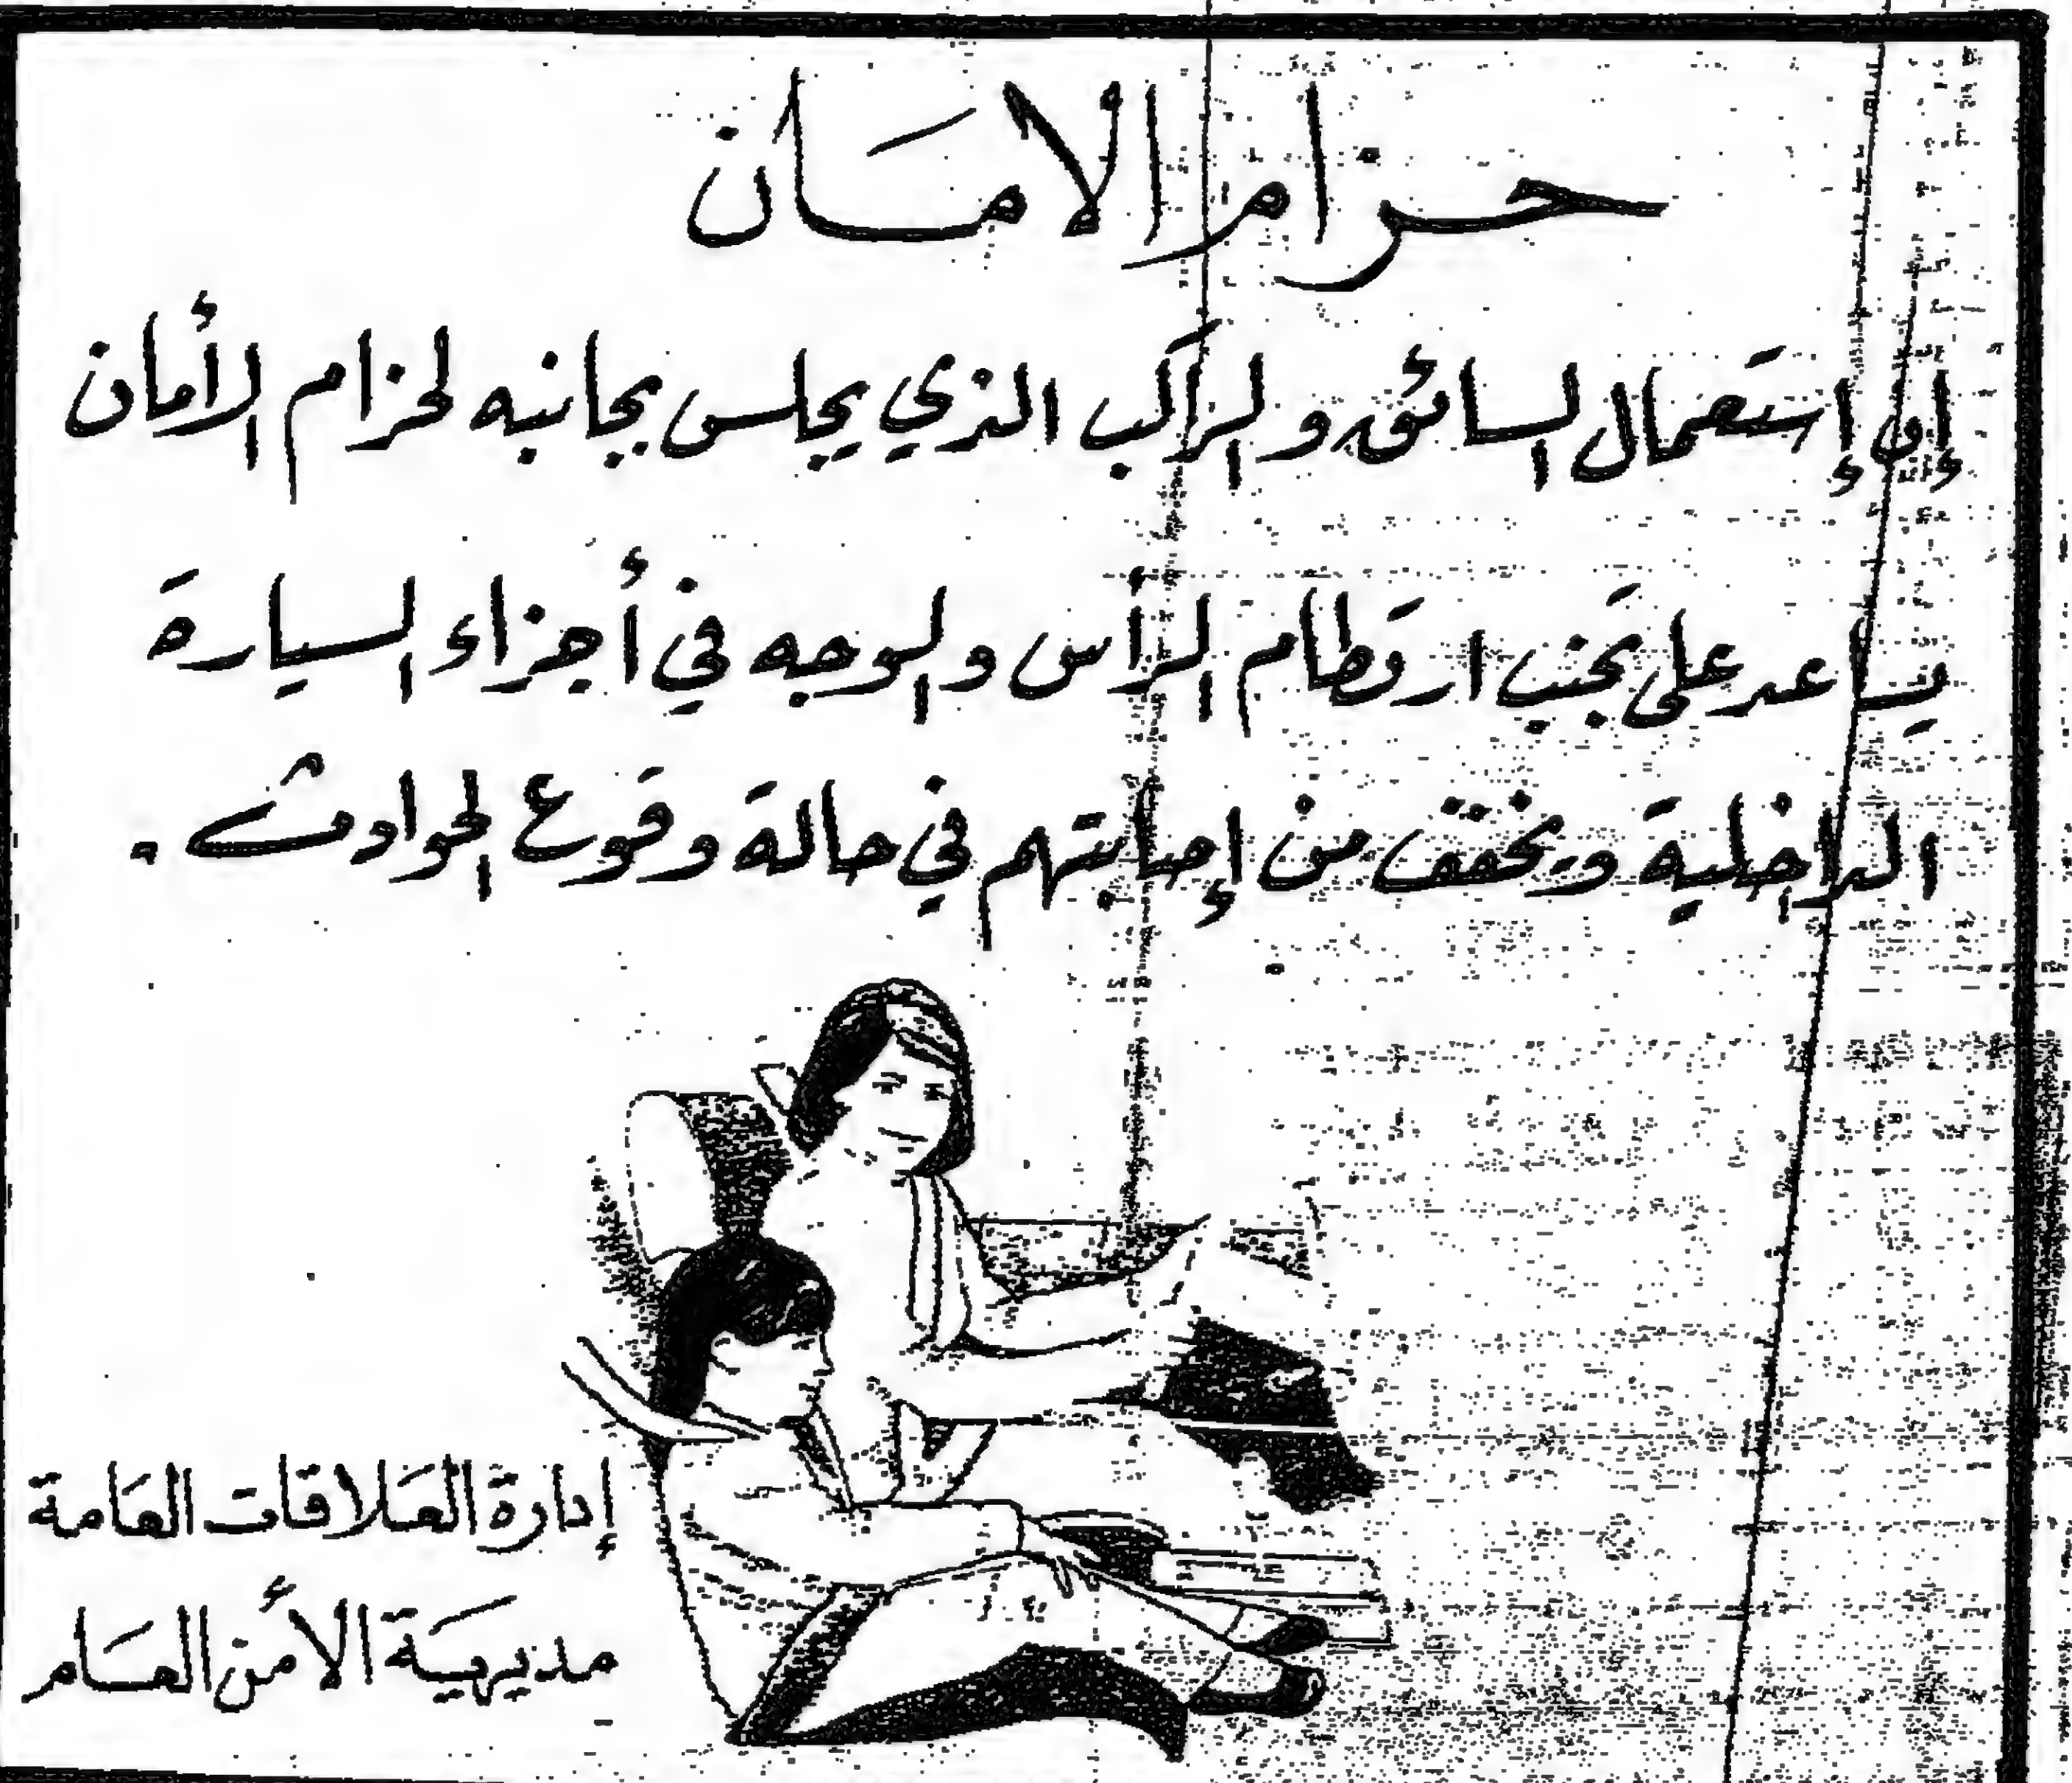 حزام الامان
إن إستعمال السائق والراكب الذي يجلس بجانبه لحزام الأمان
يساعد على تجنب ارتطام الرأس والوجه في أجزاء السيارة
الداخلية ويخفف من إصابتهم في حالة وقوع الحوادث .
إدارة العلاقات العامة
مديرية الأمن العام